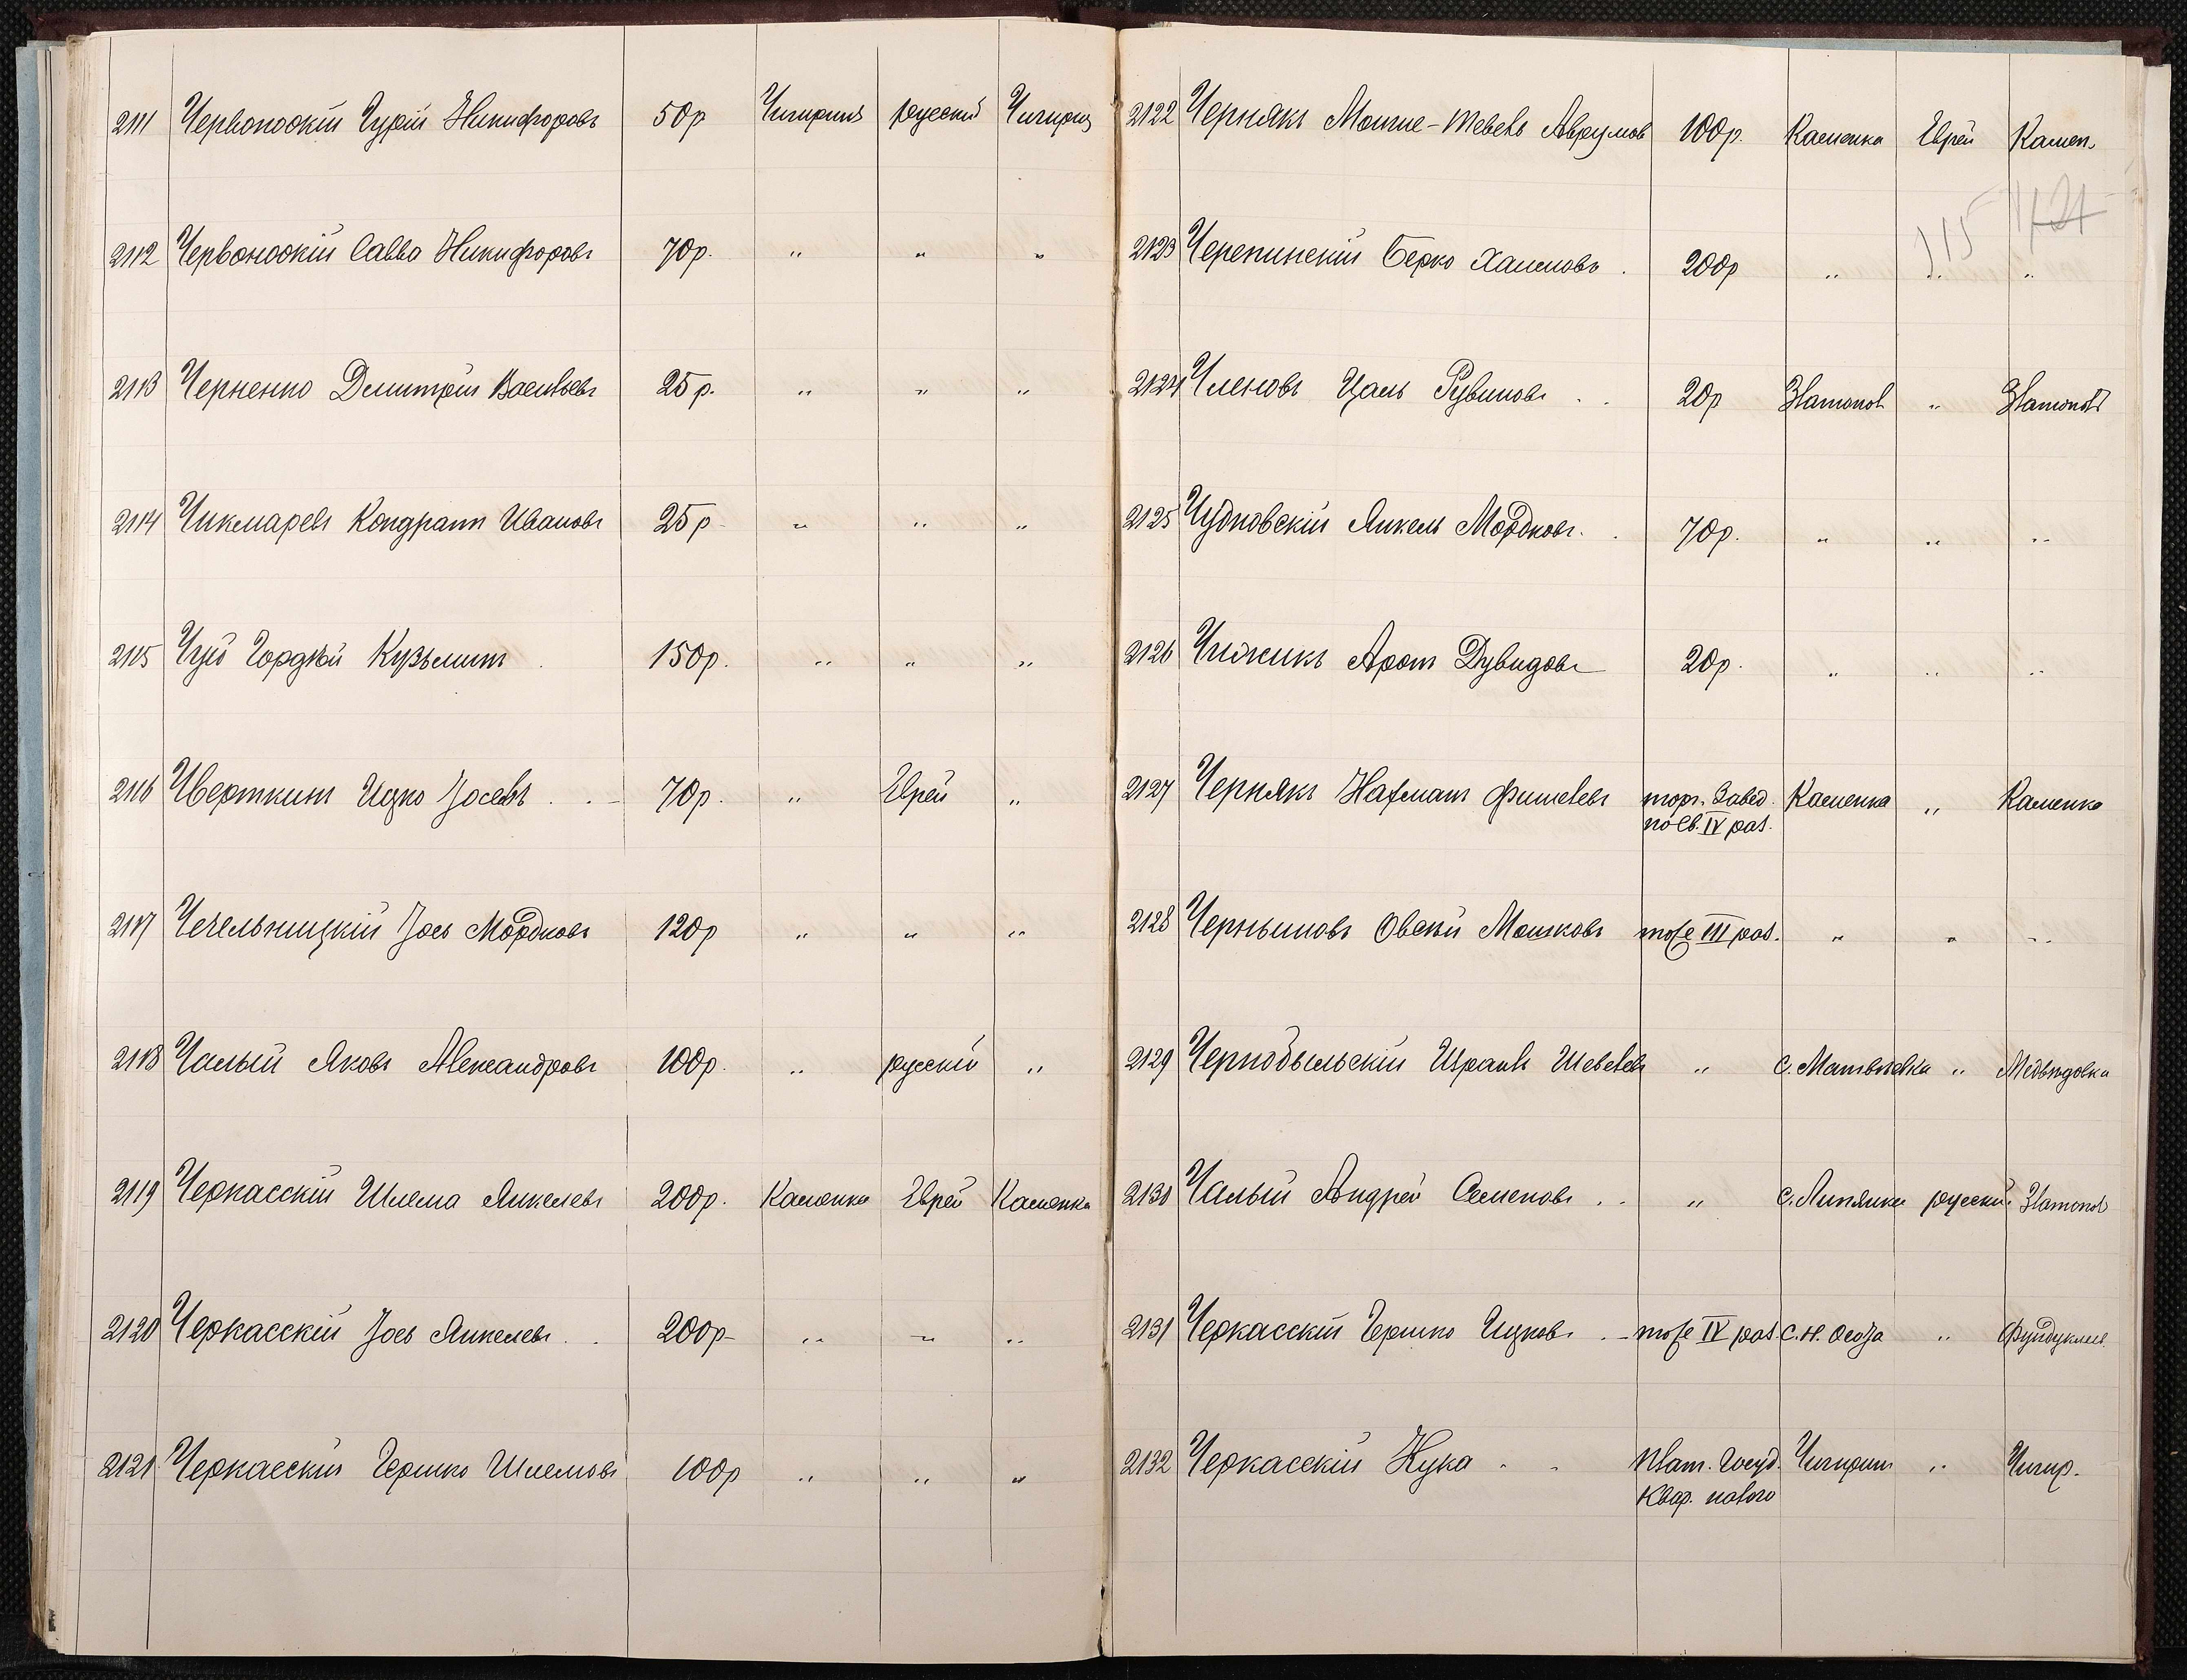 2111 Червоноокій Гурій Никифоровъ 50р Чигиринъ русскій Чигирин
2112 Червоноокій Савва Никифоровъ 70р. " " "
2113 Черненко Дмитрій Васильевъ 25р. " " "
2114 Чикмаревъ Кондратъ Ивановъ 25р " " "
2115 Чуй Гордѣй Кузьминъ 150р. " " "
2116 Чверткинъ Ицко Іосевъ 70р. " Еврей "
2117 Чечельницкій Іось Мордковъ 120р " " "
2118 Чалый Яковъ Александровъ 100р. " русскій "
2119 Черкасскій Шлема Янкелевъ 200р. Каменка Еврей Каменка
2120 Черкасскій Іось Янкелевъ 200р " " "
2121 Черкасскій Гершко Шлемовъ 100р " " "
2122 Чернякъ Мошке-Тевель Аврумов 100р. Каменка Еврей Камен.
115
2123 Черепинскій Берко Хаимовъ 200р " " "
2124 Членовъ Цаль Рувиновъ 20р Златопол " Златопол
2125 Чудновскій Янкель Мордковъ 70р. " " "
2126 Чижикъ Аронъ Дувидовъ 20р. " " "
2127 Чернякъ Нахманъ Фишелевъ торг. завед. Каменка " Каменка
по св. IV раз.
2128 Чернышовъ Овсѣй Мошковъ тоже III раз. " " "
2129 Чернобыльскій Израиль Шевелев " с. Матвѣевка " Медвѣдовка
2130 Чалый Андрей Семеновъ " с. Липянка русскій Златопол
2131 Черкасскій Гершко Ицковъ тоже IV раз. с. Н. Осота " Фундуклее
2132 Черкасскій Нука Плат. Госуд. Чигирин " Чигир.
Квар. налого